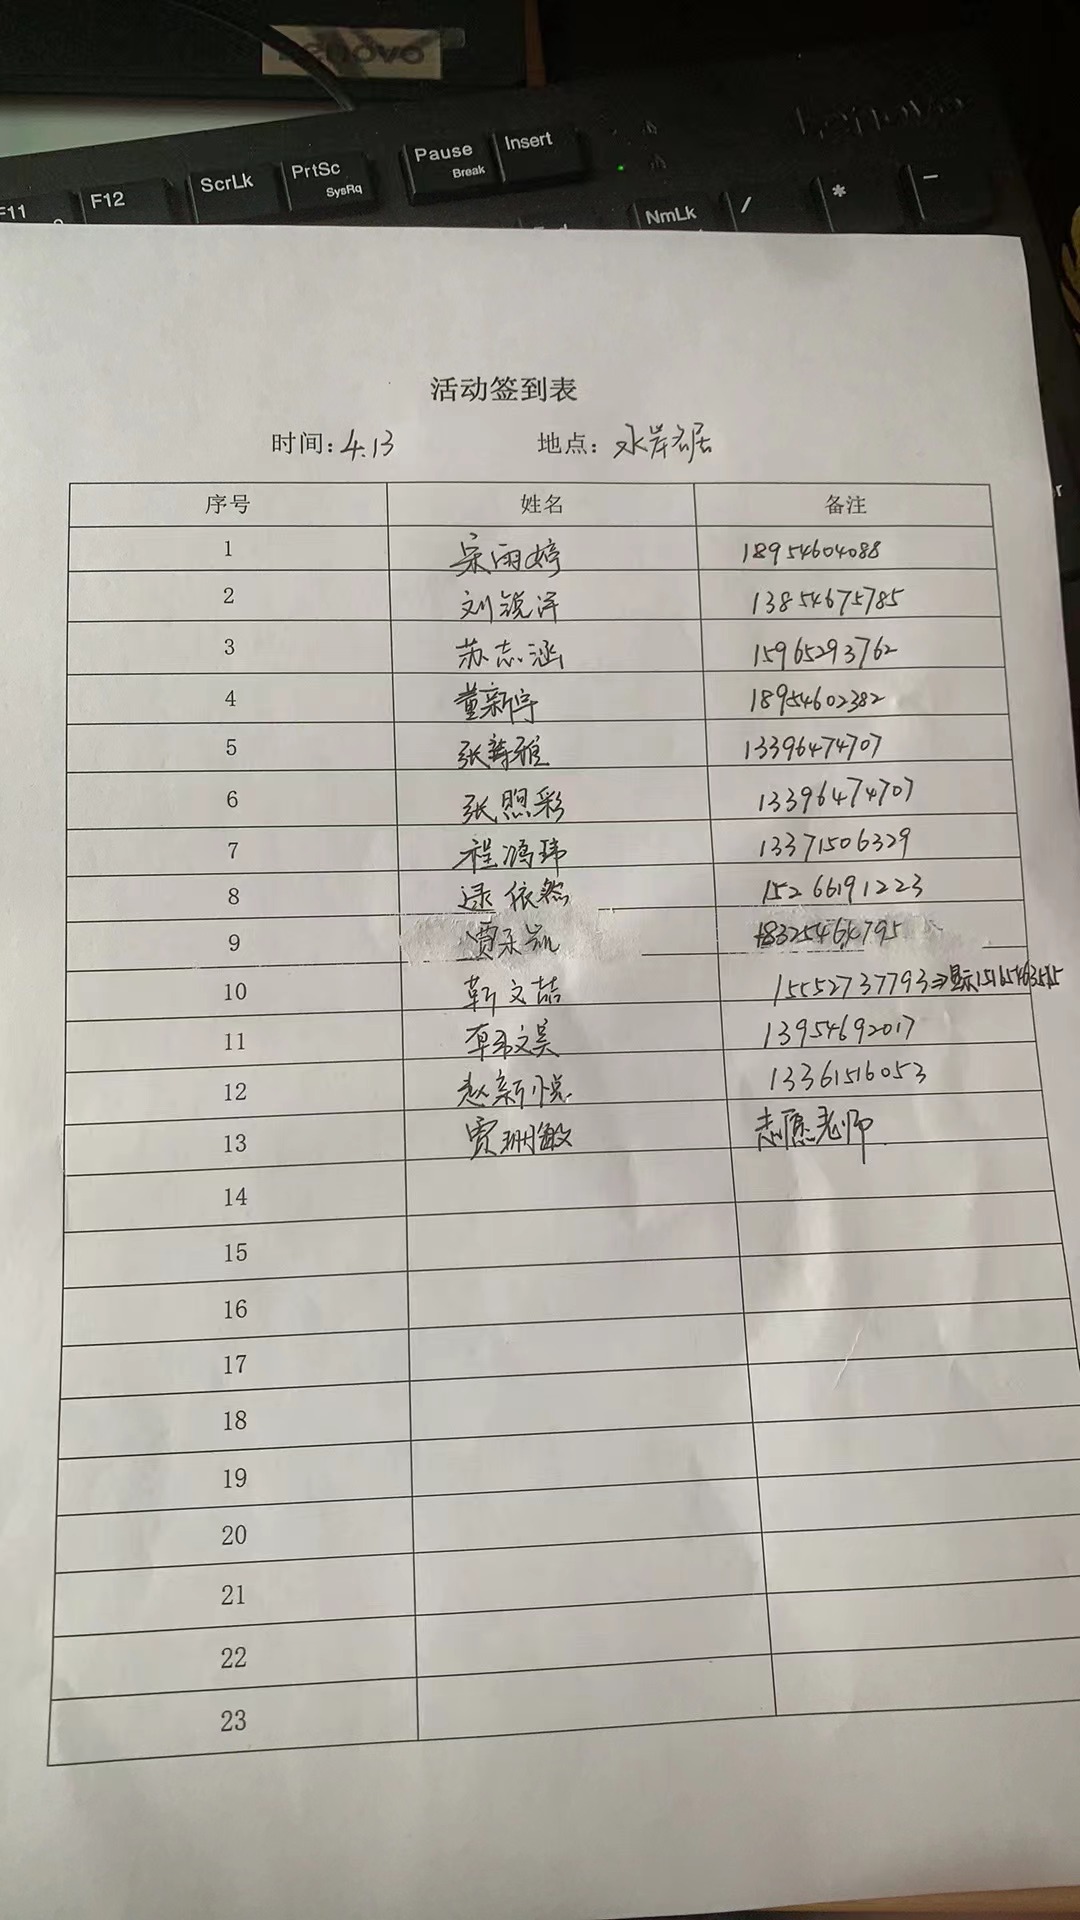 Lenovo
Lenovo
F11
F12
ScrLk
PrtSc
SysRq
Pause
Break
Insert
NmLk
/
*
-
活动签到表
时间: 4.13 地点: 水岸名居
序号 姓名 备注
1 宋雨婷 18954604088
2 刘锐泽 13854675785
3 苏志涵 15965293762
4 董新宇 18954602382
5 张 雅 13396474707
6 张照彩 13396474707
7 程鸿玮 13371506329
8 逯依然 15266191223
9 贾永凯
10 靳文喆 15552737793⇒显示
11 韩文昊 13954692017
12 赵新悦 13361516053
13 贾珊敏 志愿老师
14
15
16
17
18
19
20
21
22
23